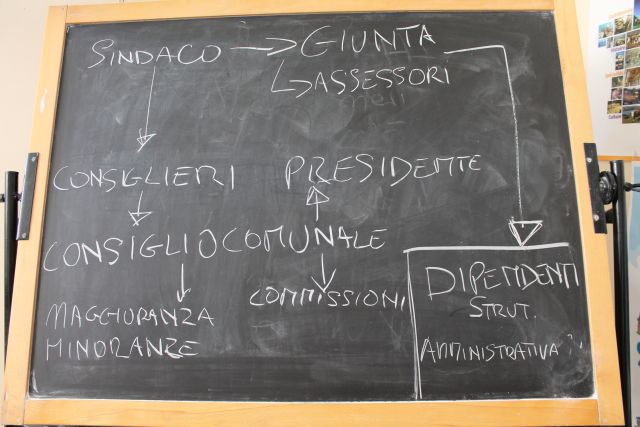 SINDACO → GIUNTA
↳ ASSESSORI
CONSIGLIERI PRESIDENTE
CONSIGLIO COMUNALE
COMMISSIONI
DIPENDENTI
STRUT.
AMMINISTRATIVA
MAGGIORANZA
MINORANZE